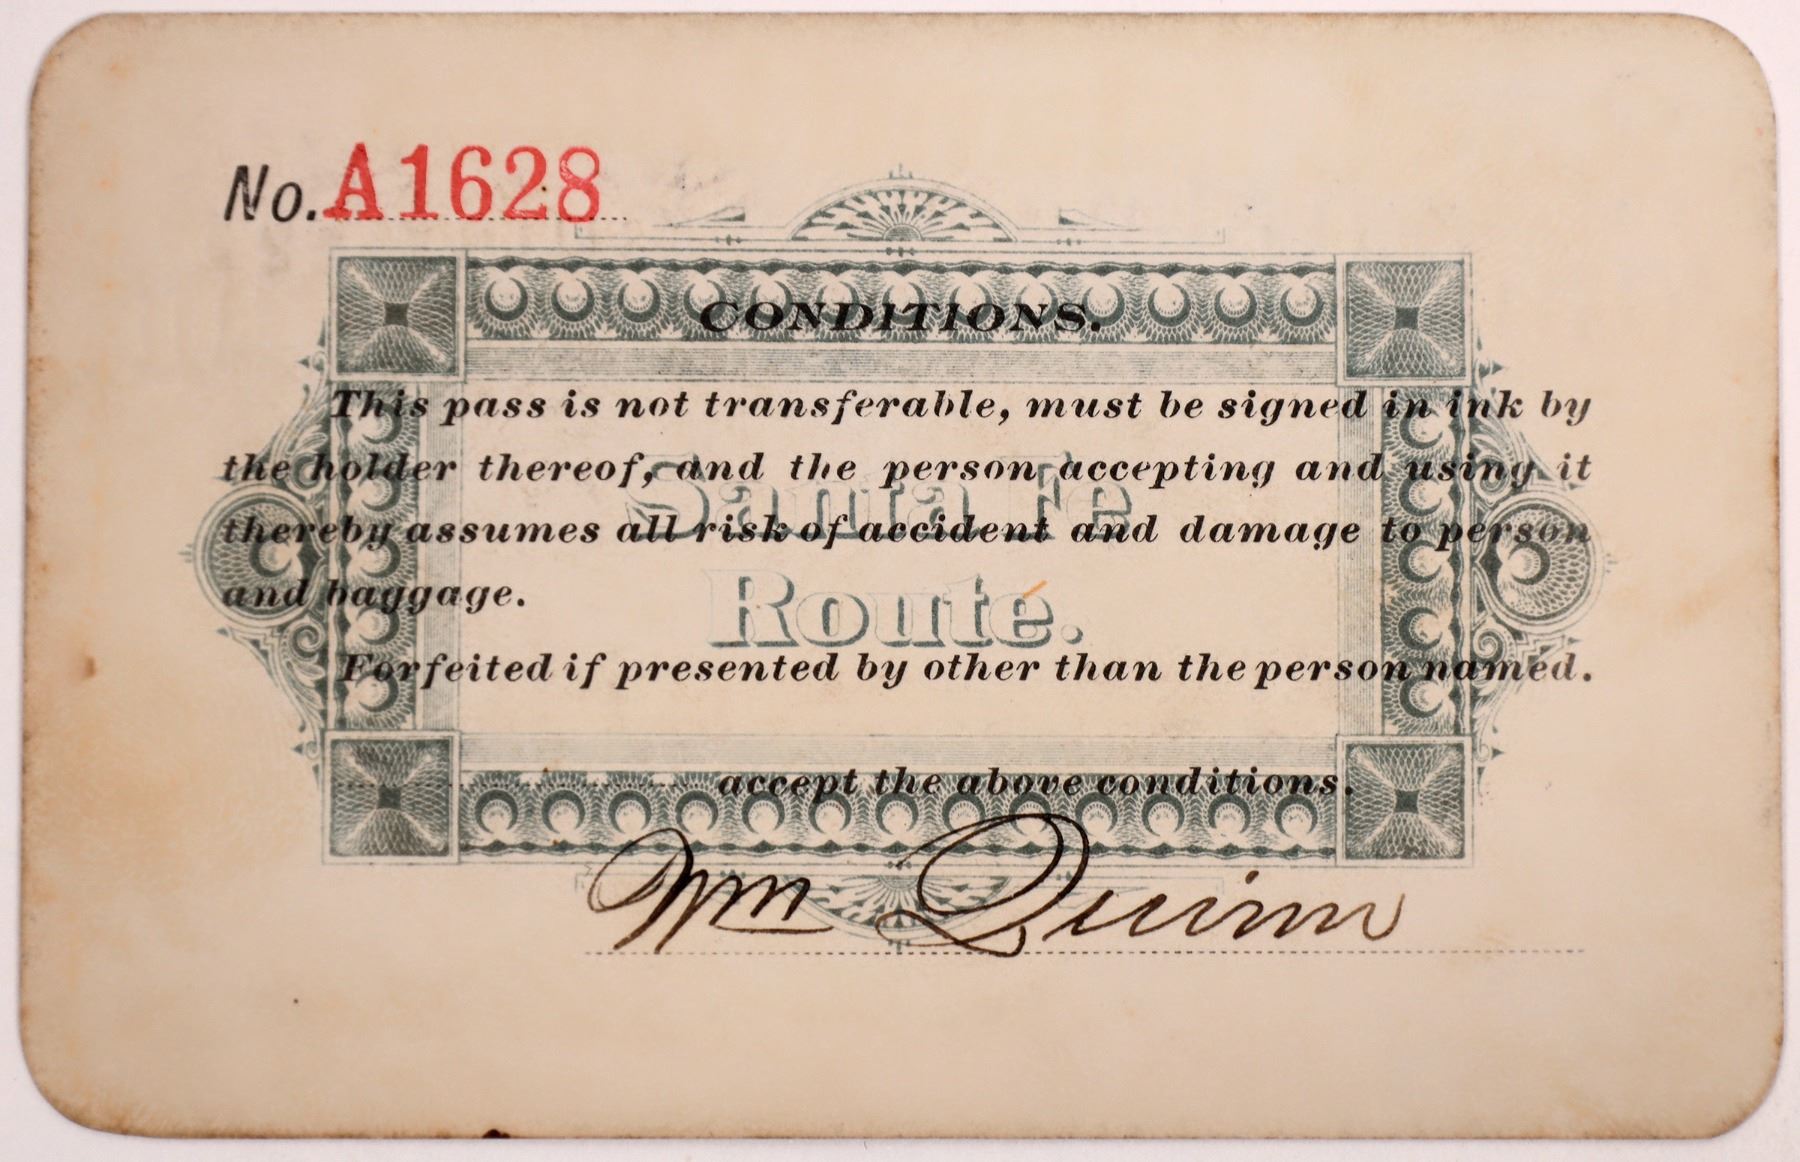 No. A1628
CONDITIONS.
This pass is not transferable, must be signed in ink by
the holder thereof, and the person accepting and using it
Santa Fe
thereby assumes all risk of accident and damage to person
and baggage.
Route.
Forfeited if presented by other than the person named.
accept the above conditions.
Wm Quinn